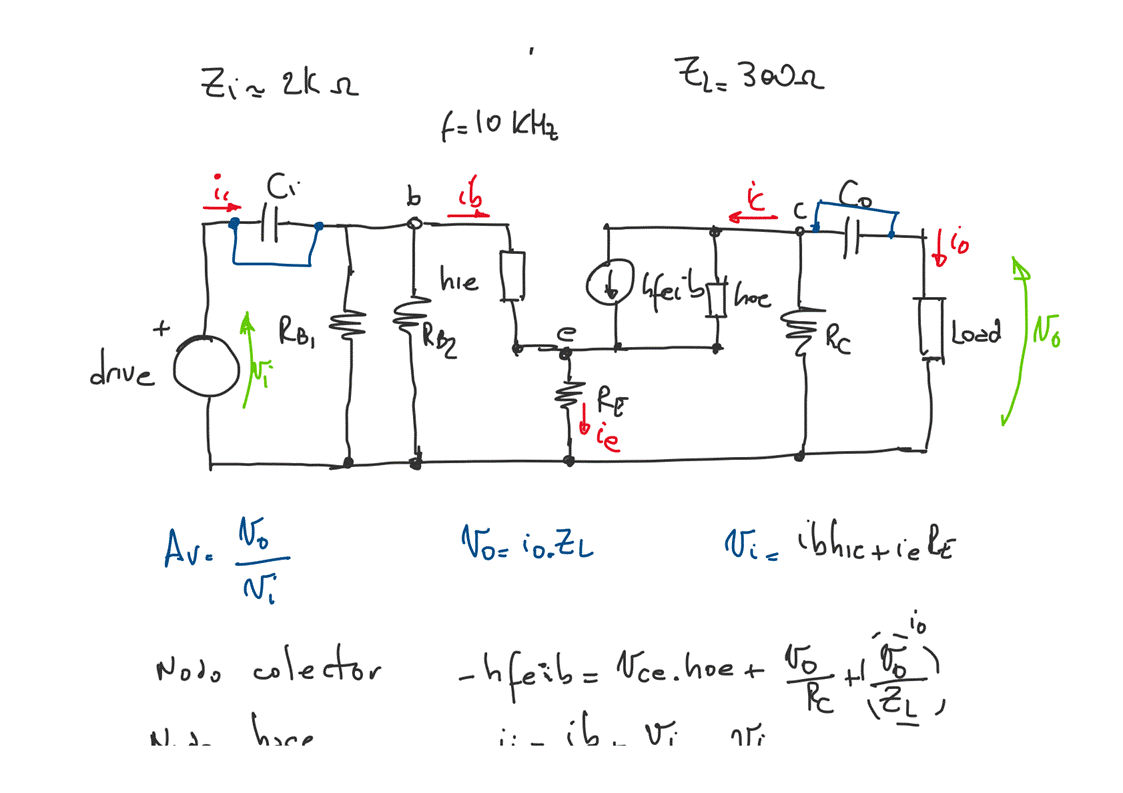 Zi≈2KΩ
ZL=300Ω
f=10KHz
ii
Ci
b
ib
ic
c
Co
io
hie
hfeib
hoe
+
drive
vi
RB1
RB2
e
RE
ie
RC
Load
vo
Av=vo/vi
vo=io.ZL
vi=ibhie+ieRE
Nodo colector
-hfeib=vce.hoe+vo/RC+(vo/ZL) io